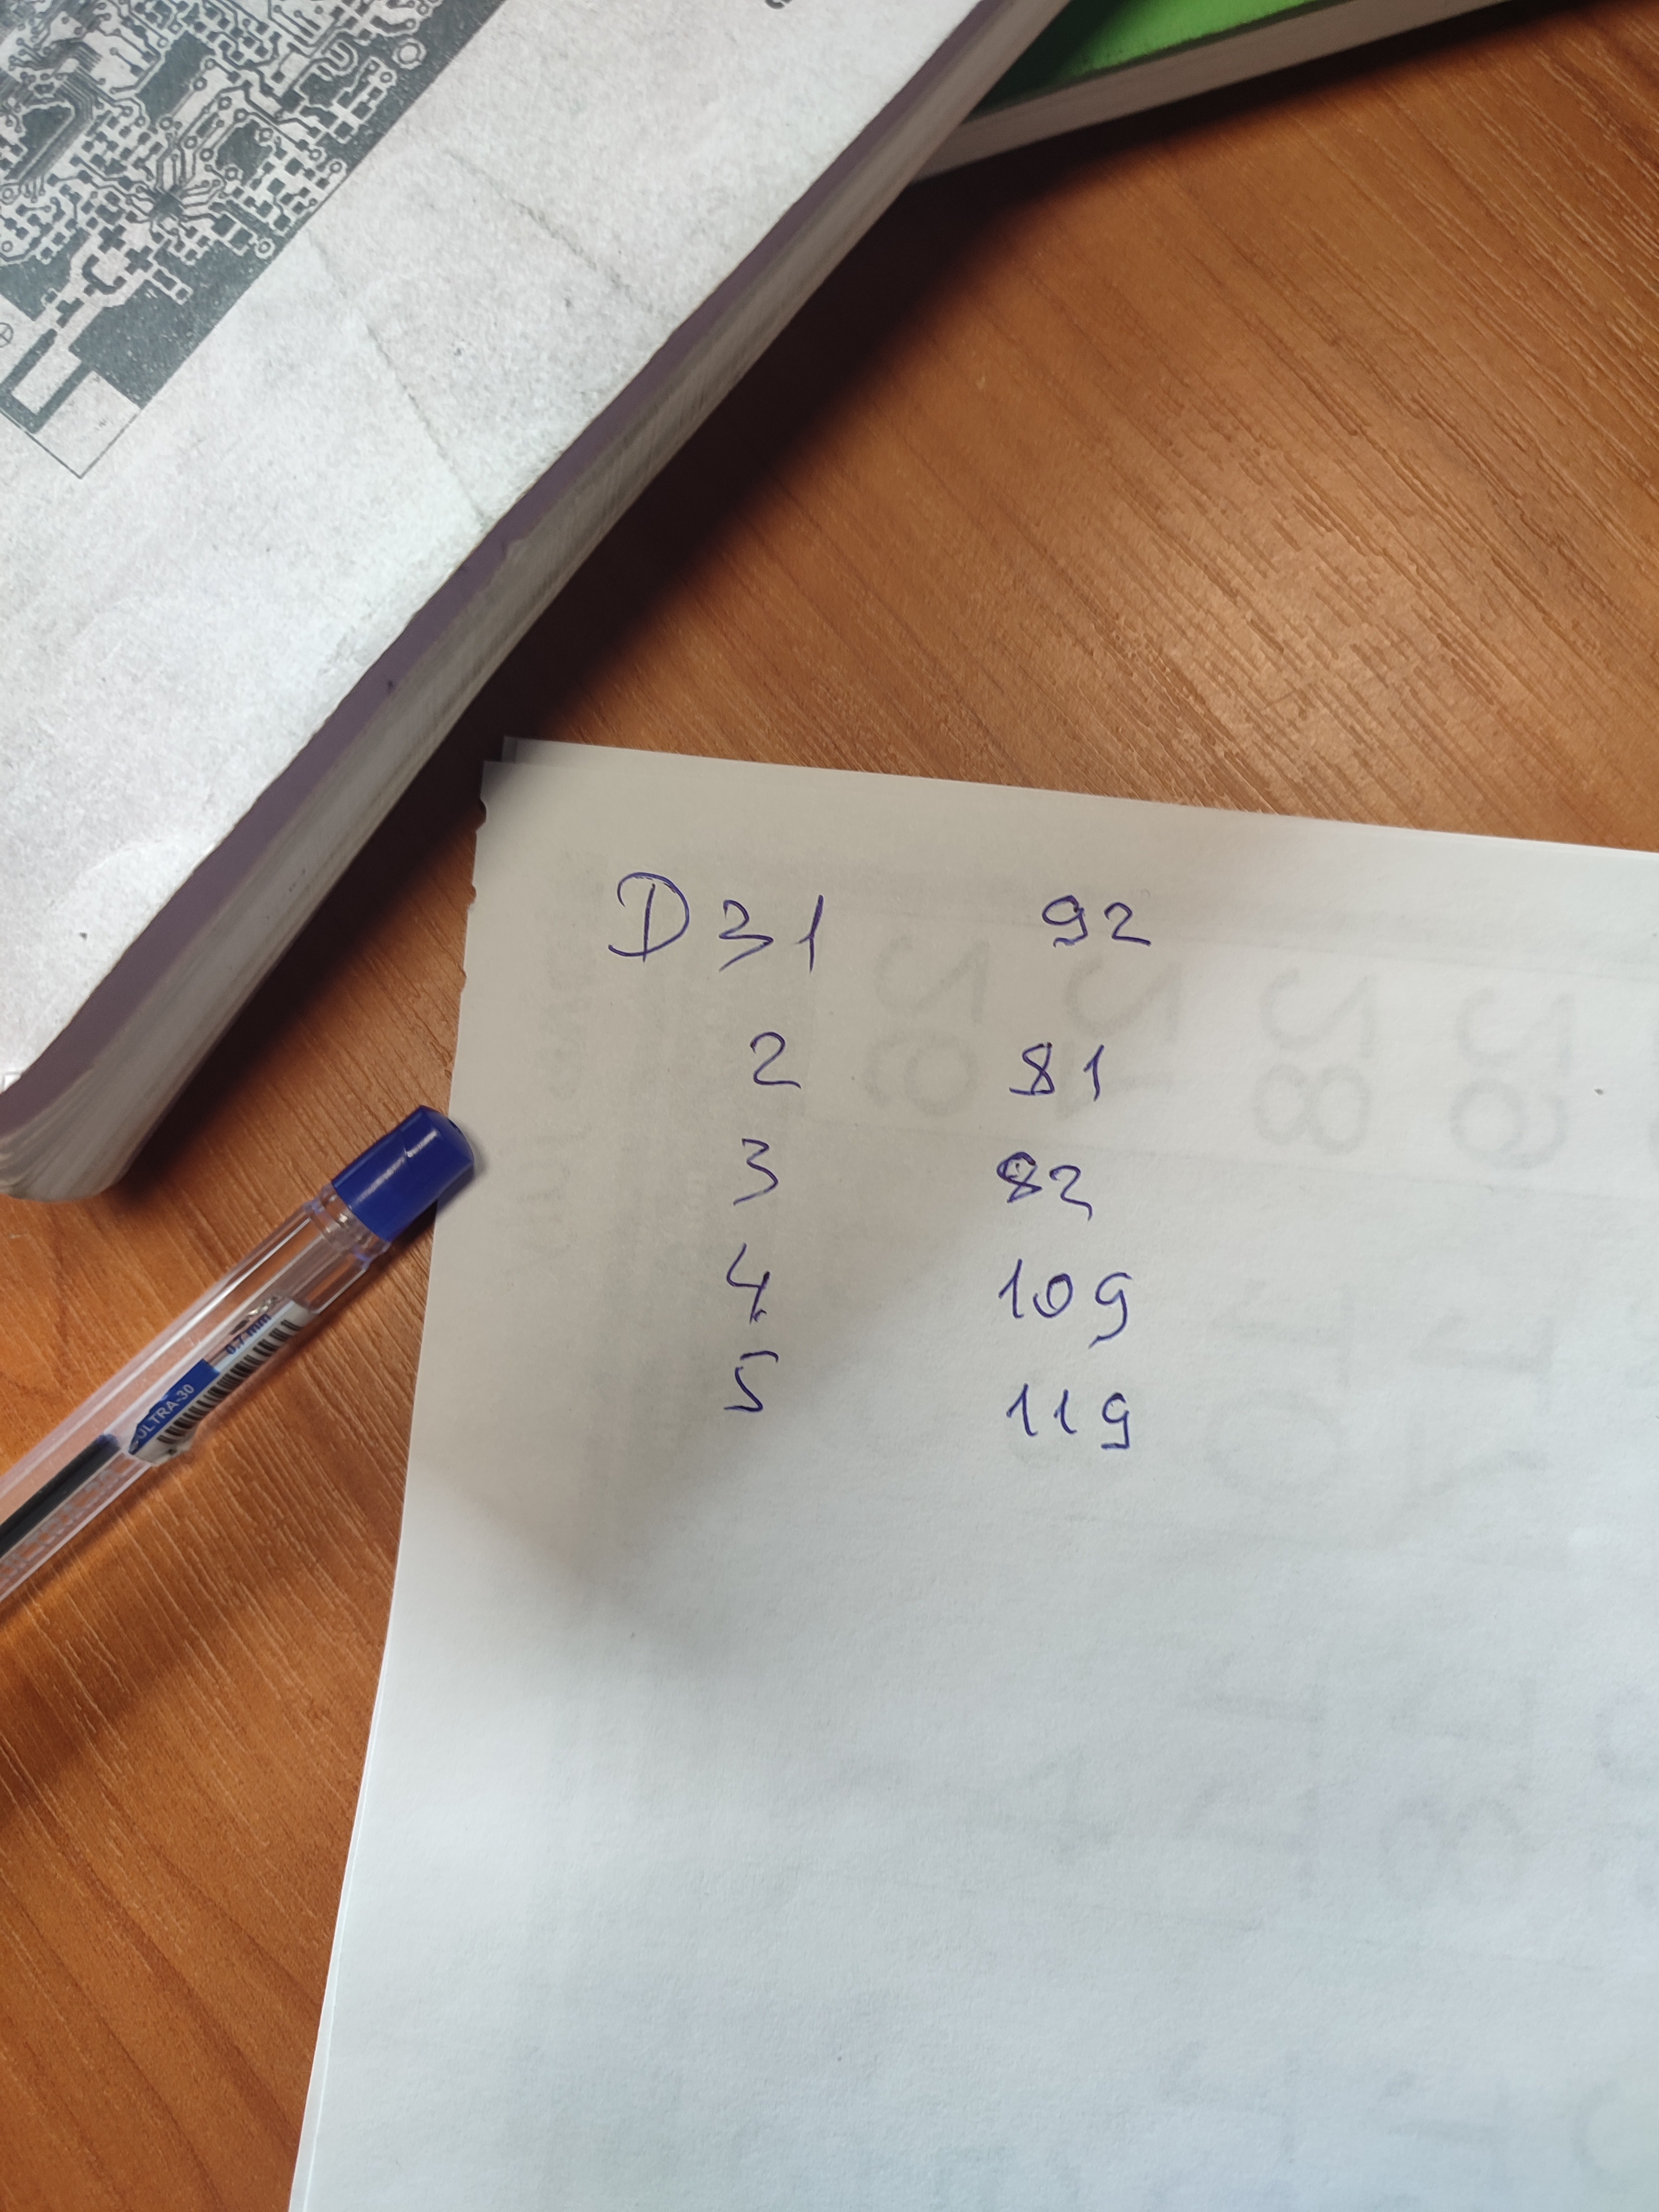 D31 92
2 81
3 82
4 109
5 119
ULTRA-30
0.7 mm